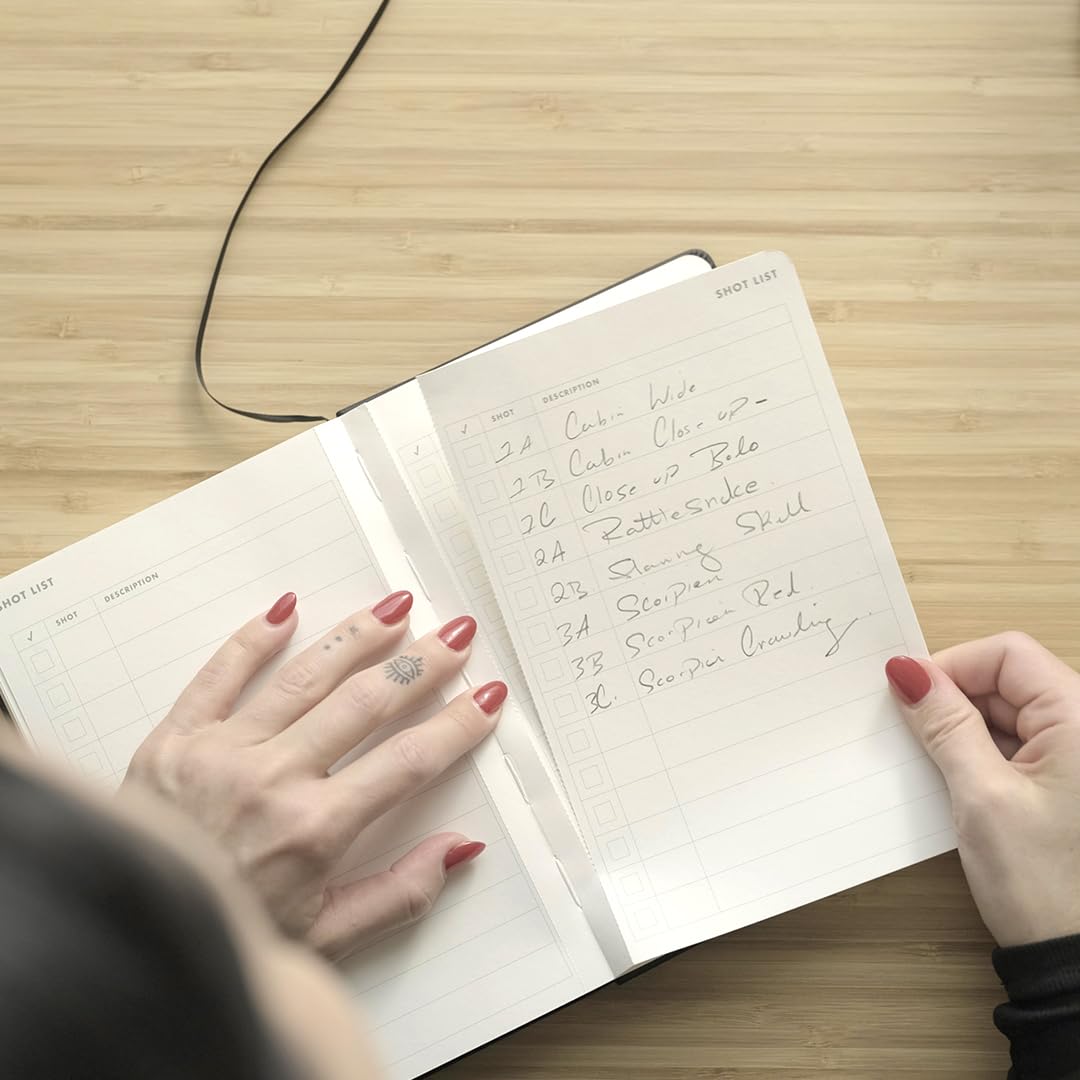 SHOT LIST
✓ SHOT DESCRIPTION
1A Cabin Wide
1B Cabin Close up -
1C Close up Bolo
2A Rattlesnake.
2B Skull
3A Scorpion
3B Scorpion Red
3C. Scorpion Crawling.
✓
SHOT LIST
✓ SHOT DESCRIPTION